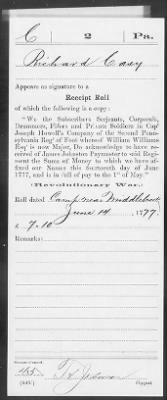 C 2 Penna.
Richard Casy
Appears as signature to a
Receipt Roll
of which the following is a copy:
"We the Subscribers Serjeants, Corporals,
Drummers, Fifers and Private Soldiers in Cap'
Joseph Howell's Company of the Second Penn-
sylvania Reg' of Foot whereof William Williams
Esq' is now Major, Do acknowledge to have re-
ceived of James Johnston Paymaster to said Regi-
ment the Sums of Money to which we have af-
fixed our Names this fourteenth day of June
1777, and is in full of pay to the 1st of May."
(Revolutionary War.)
Roll dated Camp near Middlebrook
June 14, 1777.
£ 7.10
Remarks:
(545) Copyist.